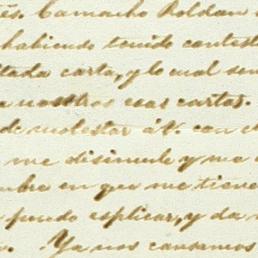 és. Camacho Roldan
habiendo tenido contest
tada carta, y lo cual sen
a nosotros esas cartas.
de molestar á V. con e
me disimule y me
mbre en que me tiene
puedo esplicar, y da
Ya nos cansamos